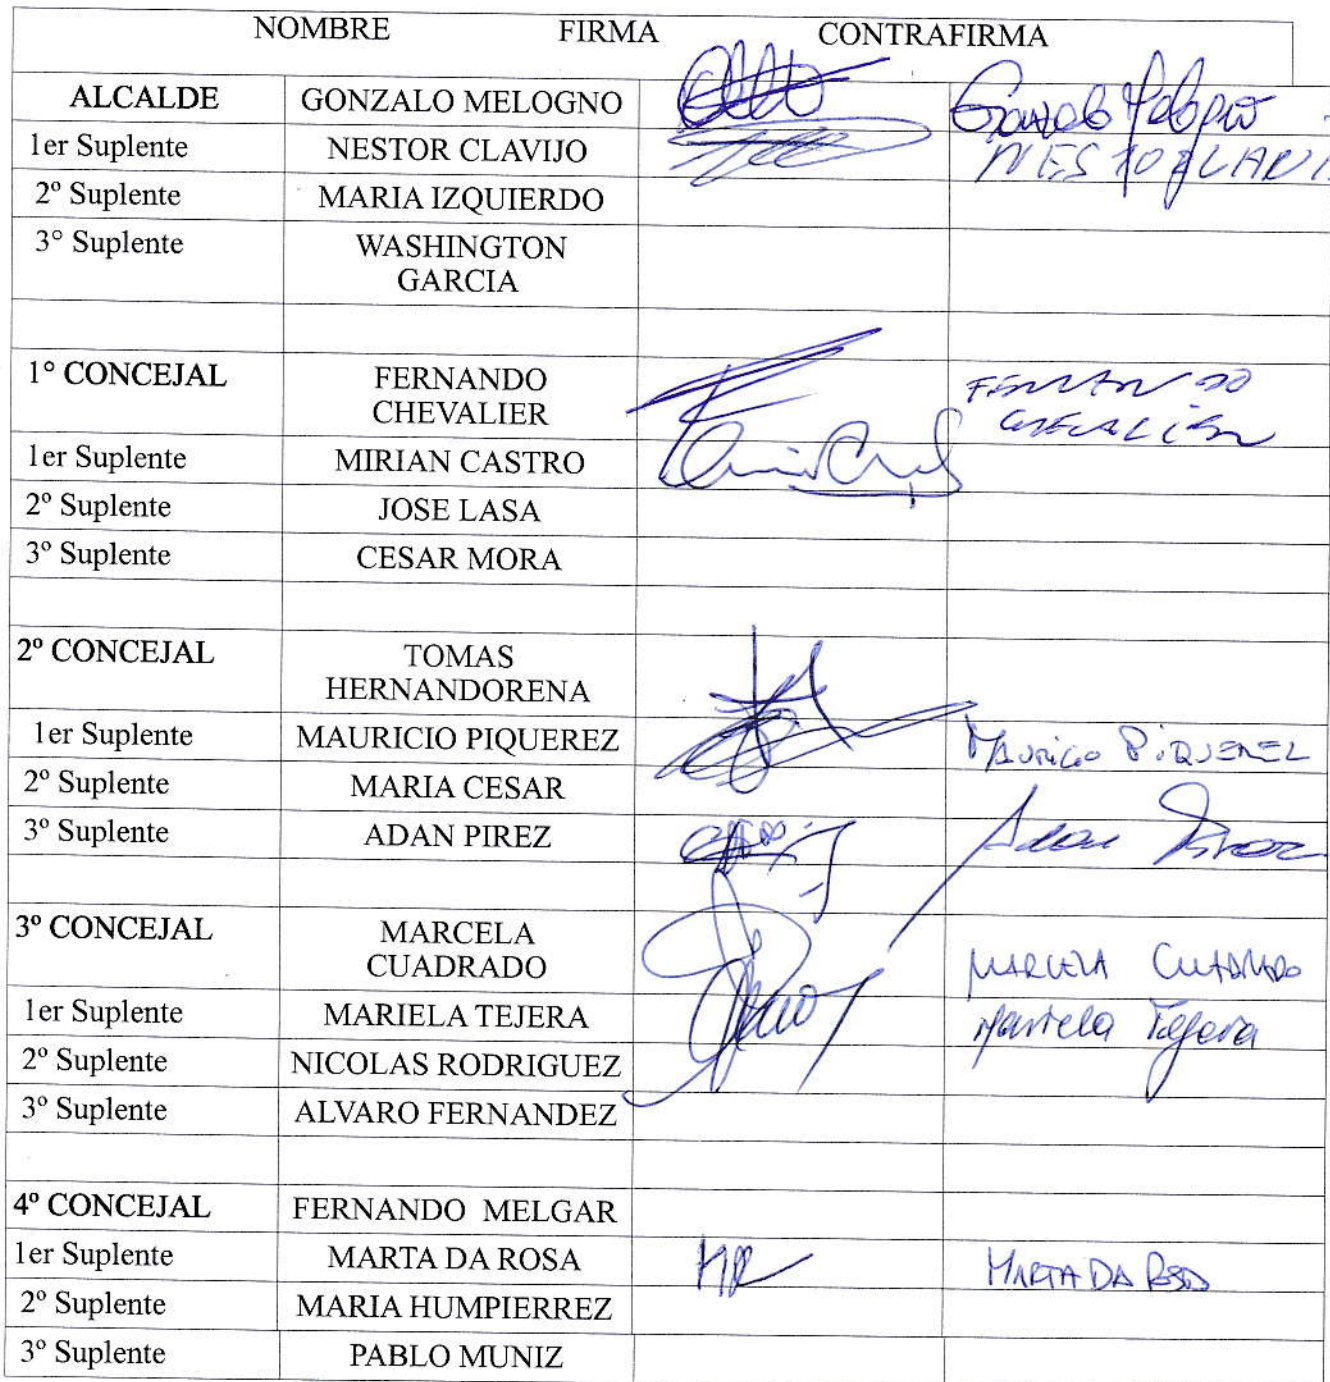 NOMBRE FIRMA CONTRAFIRMA
ALCALDE GONZALO MELOGNO Gonzalo Melogno
1er Suplente NESTOR CLAVIJO NESTOR CLAVI
2º Suplente MARIA IZQUIERDO
3° Suplente WASHINGTON
GARCIA
1° CONCEJAL FERNANDO FERNANDO
CHEVALIER CHEVALIER
1er Suplente MIRIAN CASTRO
2º Suplente JOSE LASA
3º Suplente CESAR MORA
2º CONCEJAL TOMAS
HERNANDORENA
1er Suplente MAURICIO PIQUEREZ MAURICIO PIQUEREZ
2º Suplente MARIA CESAR
3º Suplente ADAN PIREZ Adan Pirez
3º CONCEJAL MARCELA
CUADRADO MARCELA CUADRADO
1er Suplente MARIELA TEJERA Mariela Tejera
2º Suplente NICOLAS RODRIGUEZ
3º Suplente ALVARO FERNANDEZ
4º CONCEJAL FERNANDO MELGAR
1er Suplente MARTA DA ROSA MARTA DA ROSA
2º Suplente MARIA HUMPIERREZ
3º Suplente PABLO MUNIZ